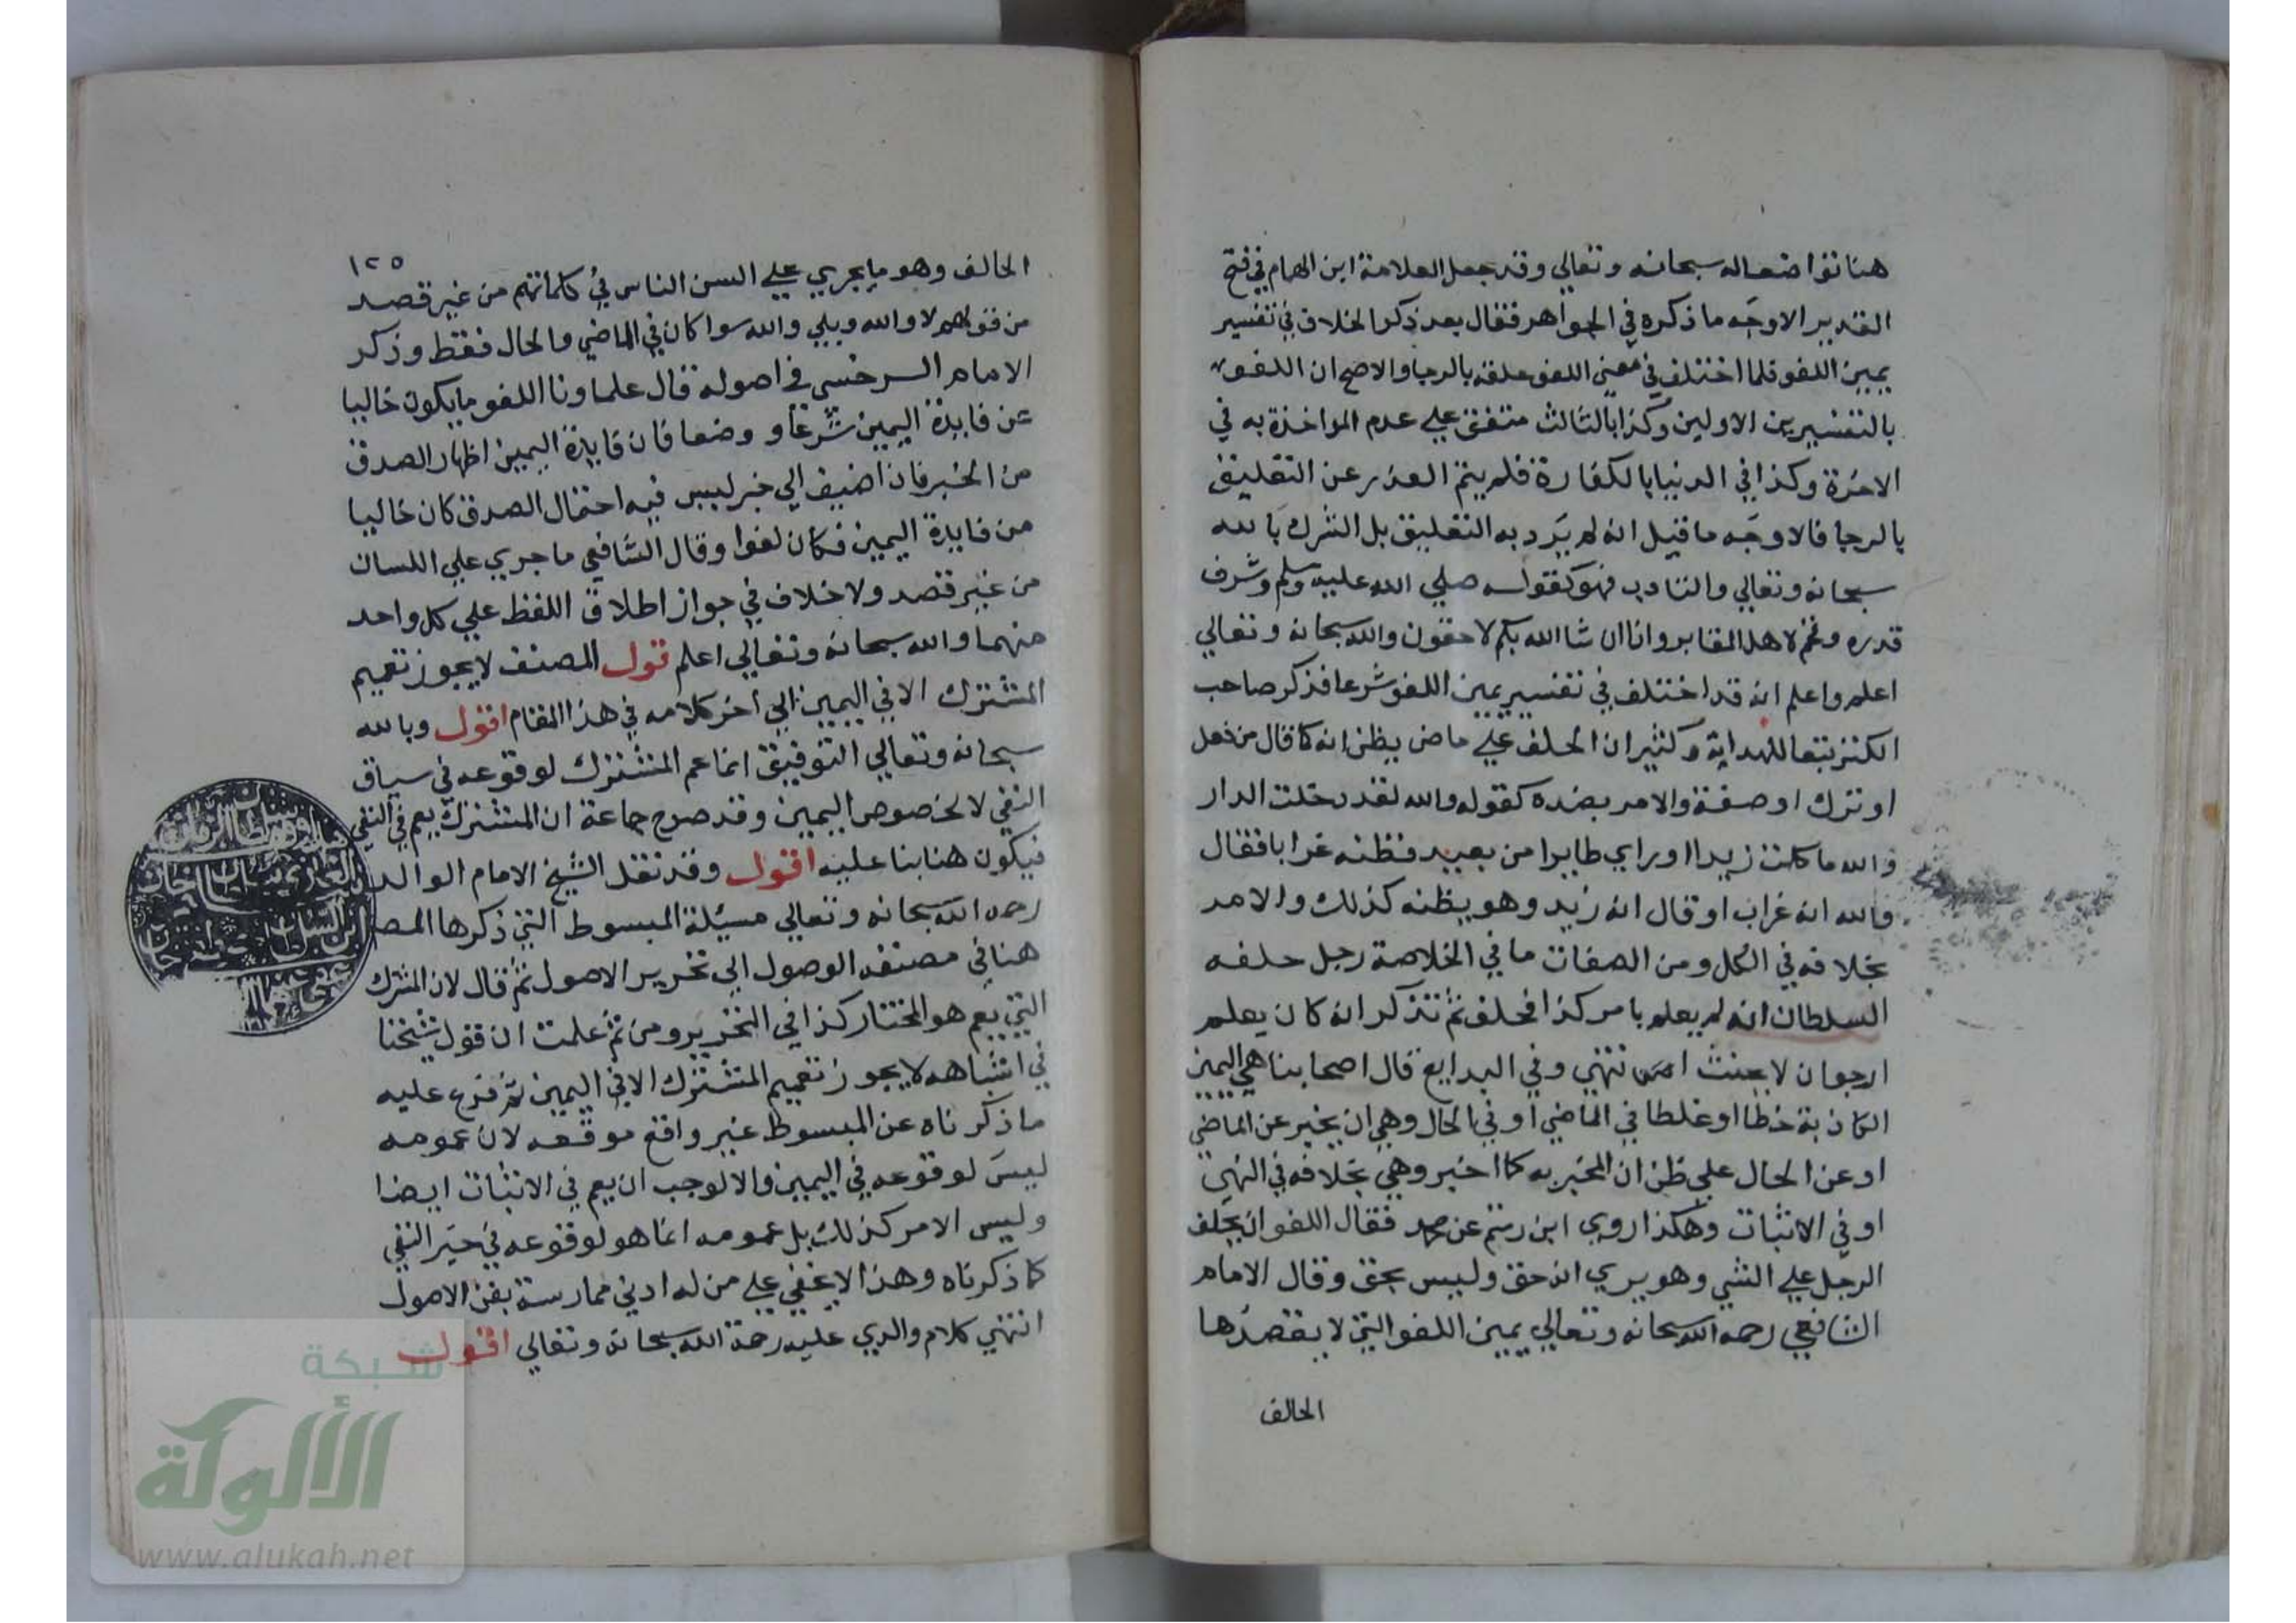 هنا تواضعا له سبحانه وتعالي وقد جعل العلامة ابن الهمام في فتح
القدير الاوجه ما ذكره في الجواهر فقال بعد ذكر الخلاف في تفسير
يمين اللغو فلما اختلف في معني اللغو علقه بالرجا والاصح ان اللغو
بالتفسيرين الاولين وكذا بالثالث متفق علي عدم المواخذة به في
الاخرة وكذا في الدنيا بالكفارة فلم يتم العذر عن التعليق
بالرجا فالاوجه ما قيل انه لم يرد به التعليق بل التبرك بالله
سبحانه وتعالي والتادب فهو كقوله صلي الله عليه وسلم وشرف
قدره وفخم لاهل المقابر وانا ان شا الله بكم لاحقون والله سبحانه وتعالي
اعلم واعلم انه قد اختلف في تفسير يمين اللغو شرعا فذكر صاحب
الكنز تبعا للهداية وكثير ان الحلف علي ماض يظن انه كما قال من فعل
او ترك او صفة والامر بضده كقوله والله لقد دخلت الدار
والله ما كلمت زيدا او راي طايرا من بعيد فظنه غرابا فقال
والله انه غراب او قال انه زيد وهو يظنه كذلك والامر
بخلافه في الكل ومن الصفات ما في الخلاصة رجل حلفه
السلطان انه لم يعلم بامر كذا فحلف ثم تذكر انه كان يعلم
ارجو ان لا يحنث انتهي وفي البدايع قال اصحابنا هي اليمين
الكاذبة خطا او غلطا في الماضي او في الحال وهي ان يخبر عن الماضي
او عن الحال علي ظن ان المخبر به كما اخبر وهي بخلافه في النفي
او في الاثبات وهكذا روي ابن رستم عن محمد فقال اللغو ان يحلف
الرجل علي الشي وهو يري انه حق وليس بحق وقال الامام
الشافعي رحمه الله سبحانه وتعالي يمين اللغو التي لا يقصدها
الحالف
١٢٥
الحالف وهو ما يجري علي السن الناس في كلماتهم من غير قصد
من قولهم لا والله وبلي والله سوا كان في الماضي والحال فقط وذكر
الامام السرخسي في اصوله قال علماونا اللغو ما يكون خاليا
عن فايدة اليمين شرعا و وضعا فان فايدة اليمين اظهار الصدق
من الخبر فان اضيف الي خبر ليس فيه احتمال الصدق كان خاليا
من فايدة اليمين فكان لغوا وقال الشافعي ما جري علي اللسان
من غير قصد ولا خلاف في جواز اطلاق اللفظ علي كل واحد
منهما والله سبحانه وتعالي اعلم قول المصنف لا يجوز تعميم
المشترك الا في اليمين الي اخر كلامه في هذا المقام اقول وبالله
سبحانه وتعالي التوفيق انما عم المشترك لوقوعه في سياق
النفي لا لخصوص اليمين وقد صرح جماعة ان المشترك يعم في النفي
فيكون هنا بنا عليه اقول وقد نقل الشيخ الامام الوالد
رحمه الله سبحانه وتعالي مسئلة المبسوط التي ذكرها المص
هنا في مصنفه الوصول الي تحرير الاصول ثم قال لان المشترك
التي يعم هو المختار كذا في التحرير ومن ثم علمت ان قول شيخنا
في اشباهه لا يجوز تعميم المشترك الا في اليمين ثم فرع عليه
ما ذكرناه عن المبسوط غير واقع موقعه لان عمومه
ليس لوقوعه في اليمين والا لوجب ان يعم في الاثبات ايضا
وليس الامر كذلك بل عمومه انما هو لوقوعه في حيز النفي
كما ذكرناه وهذا لا يخفي علي من له ادني ممارسة بفن الاصول
انتهي كلام والدي عليه رحمة الله سبحانه وتعالي اقول
شبكة
الألوكة
www.alukah.net